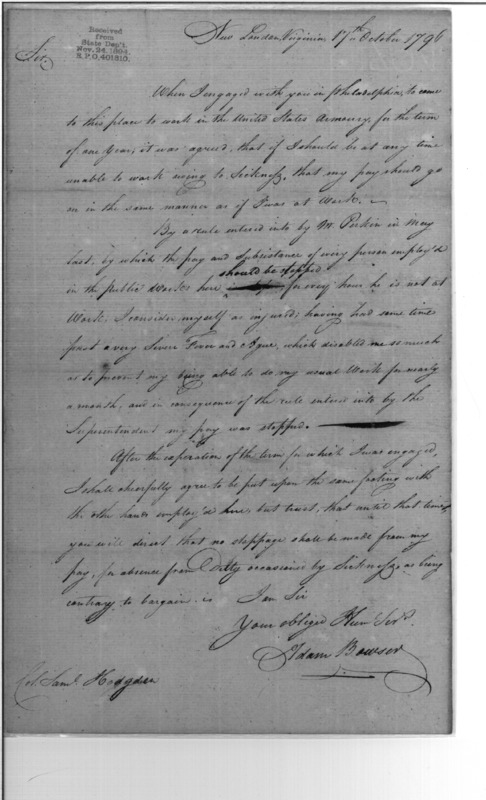 Received
from
State Dep't.
Nov. 24, 1894.
R.P.O. 401810.
New London Virginia 17th October 1796
Sir,
When I engaged with you in Philadelphia, to come
to this place to work in the United States Armoury, for the term
of one Year, it was agreed, that if I should be at any time
unable to work owing to Sickness, that my pay should go
on in the same manner as if I was at Work.
By a rule entered into by Mr. Perkin in May
last, by which the pay and Subsistance of every person employ'd
should be stopped
in the public Works here for every hour he is not at
Work. I consider myself as injured; having had some time
past a very Severe Fever and Ague, which disabled me so much
as to prevent my being able to do my usual Work for nearly
a month, and in consequence of the rule entered into by the
Superintendent my pay was stopped.
After the expiration of the term for which I was engaged,
I shall chearfully agree to be put upon the same footing with
the other hands employ'd here, but trust, that until that time,
you will direct that no stoppage shall be made from my
pay, for absence from Duty occasioned by Sickness, as being
contrary to bargain.
I am Sir
Your obliged Hum. Servt.
Adam Bowser
Col. Saml. Hodgdon